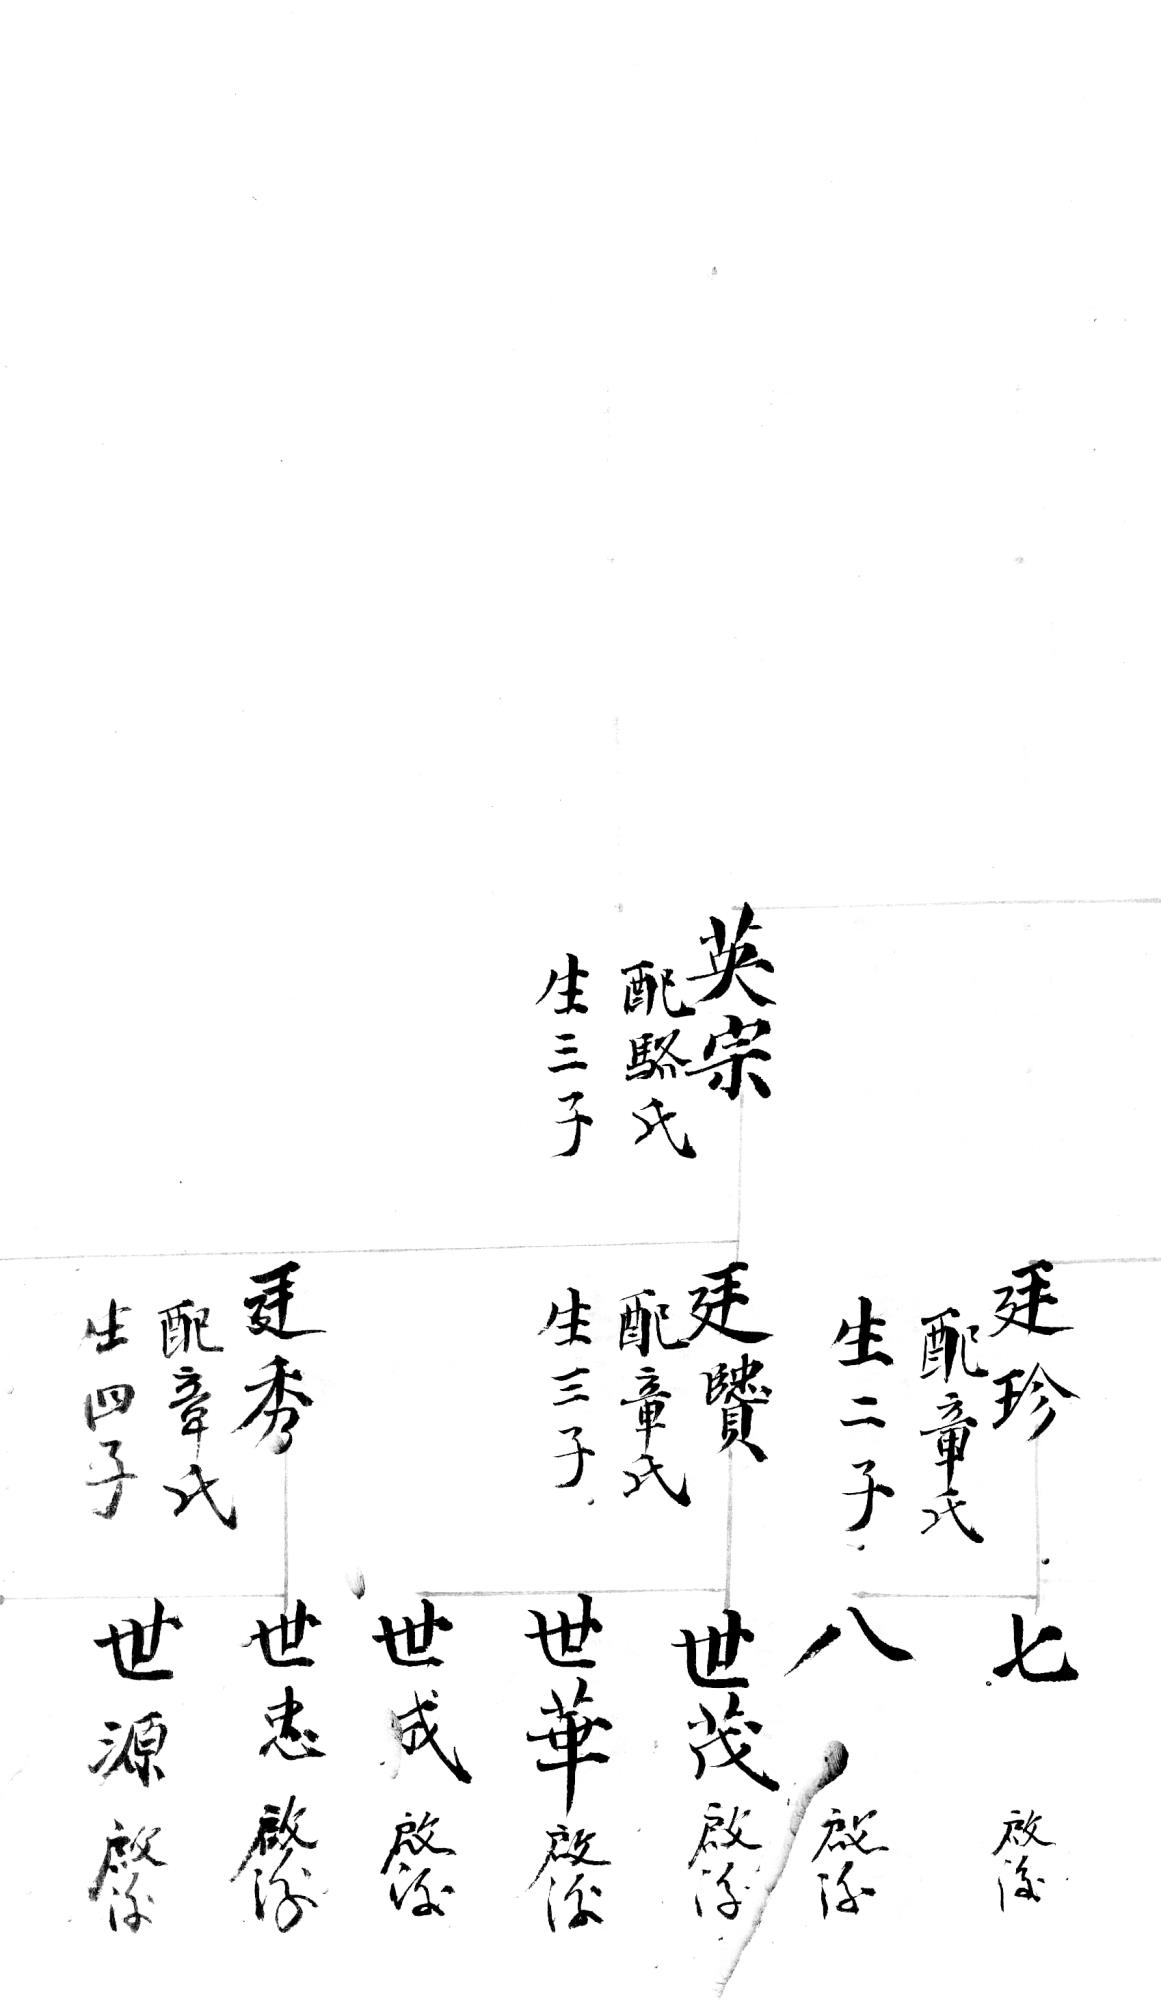 英宗
配駱氏
生三子
廷珍
配章氏
生二子
廷贇
配章氏
生三子
廷秀
配章氏
生四子
七
啟後
八
啟後
世茂
啟後
世華
啟後
世成
啟後
世忠
啟後
世源
啟後